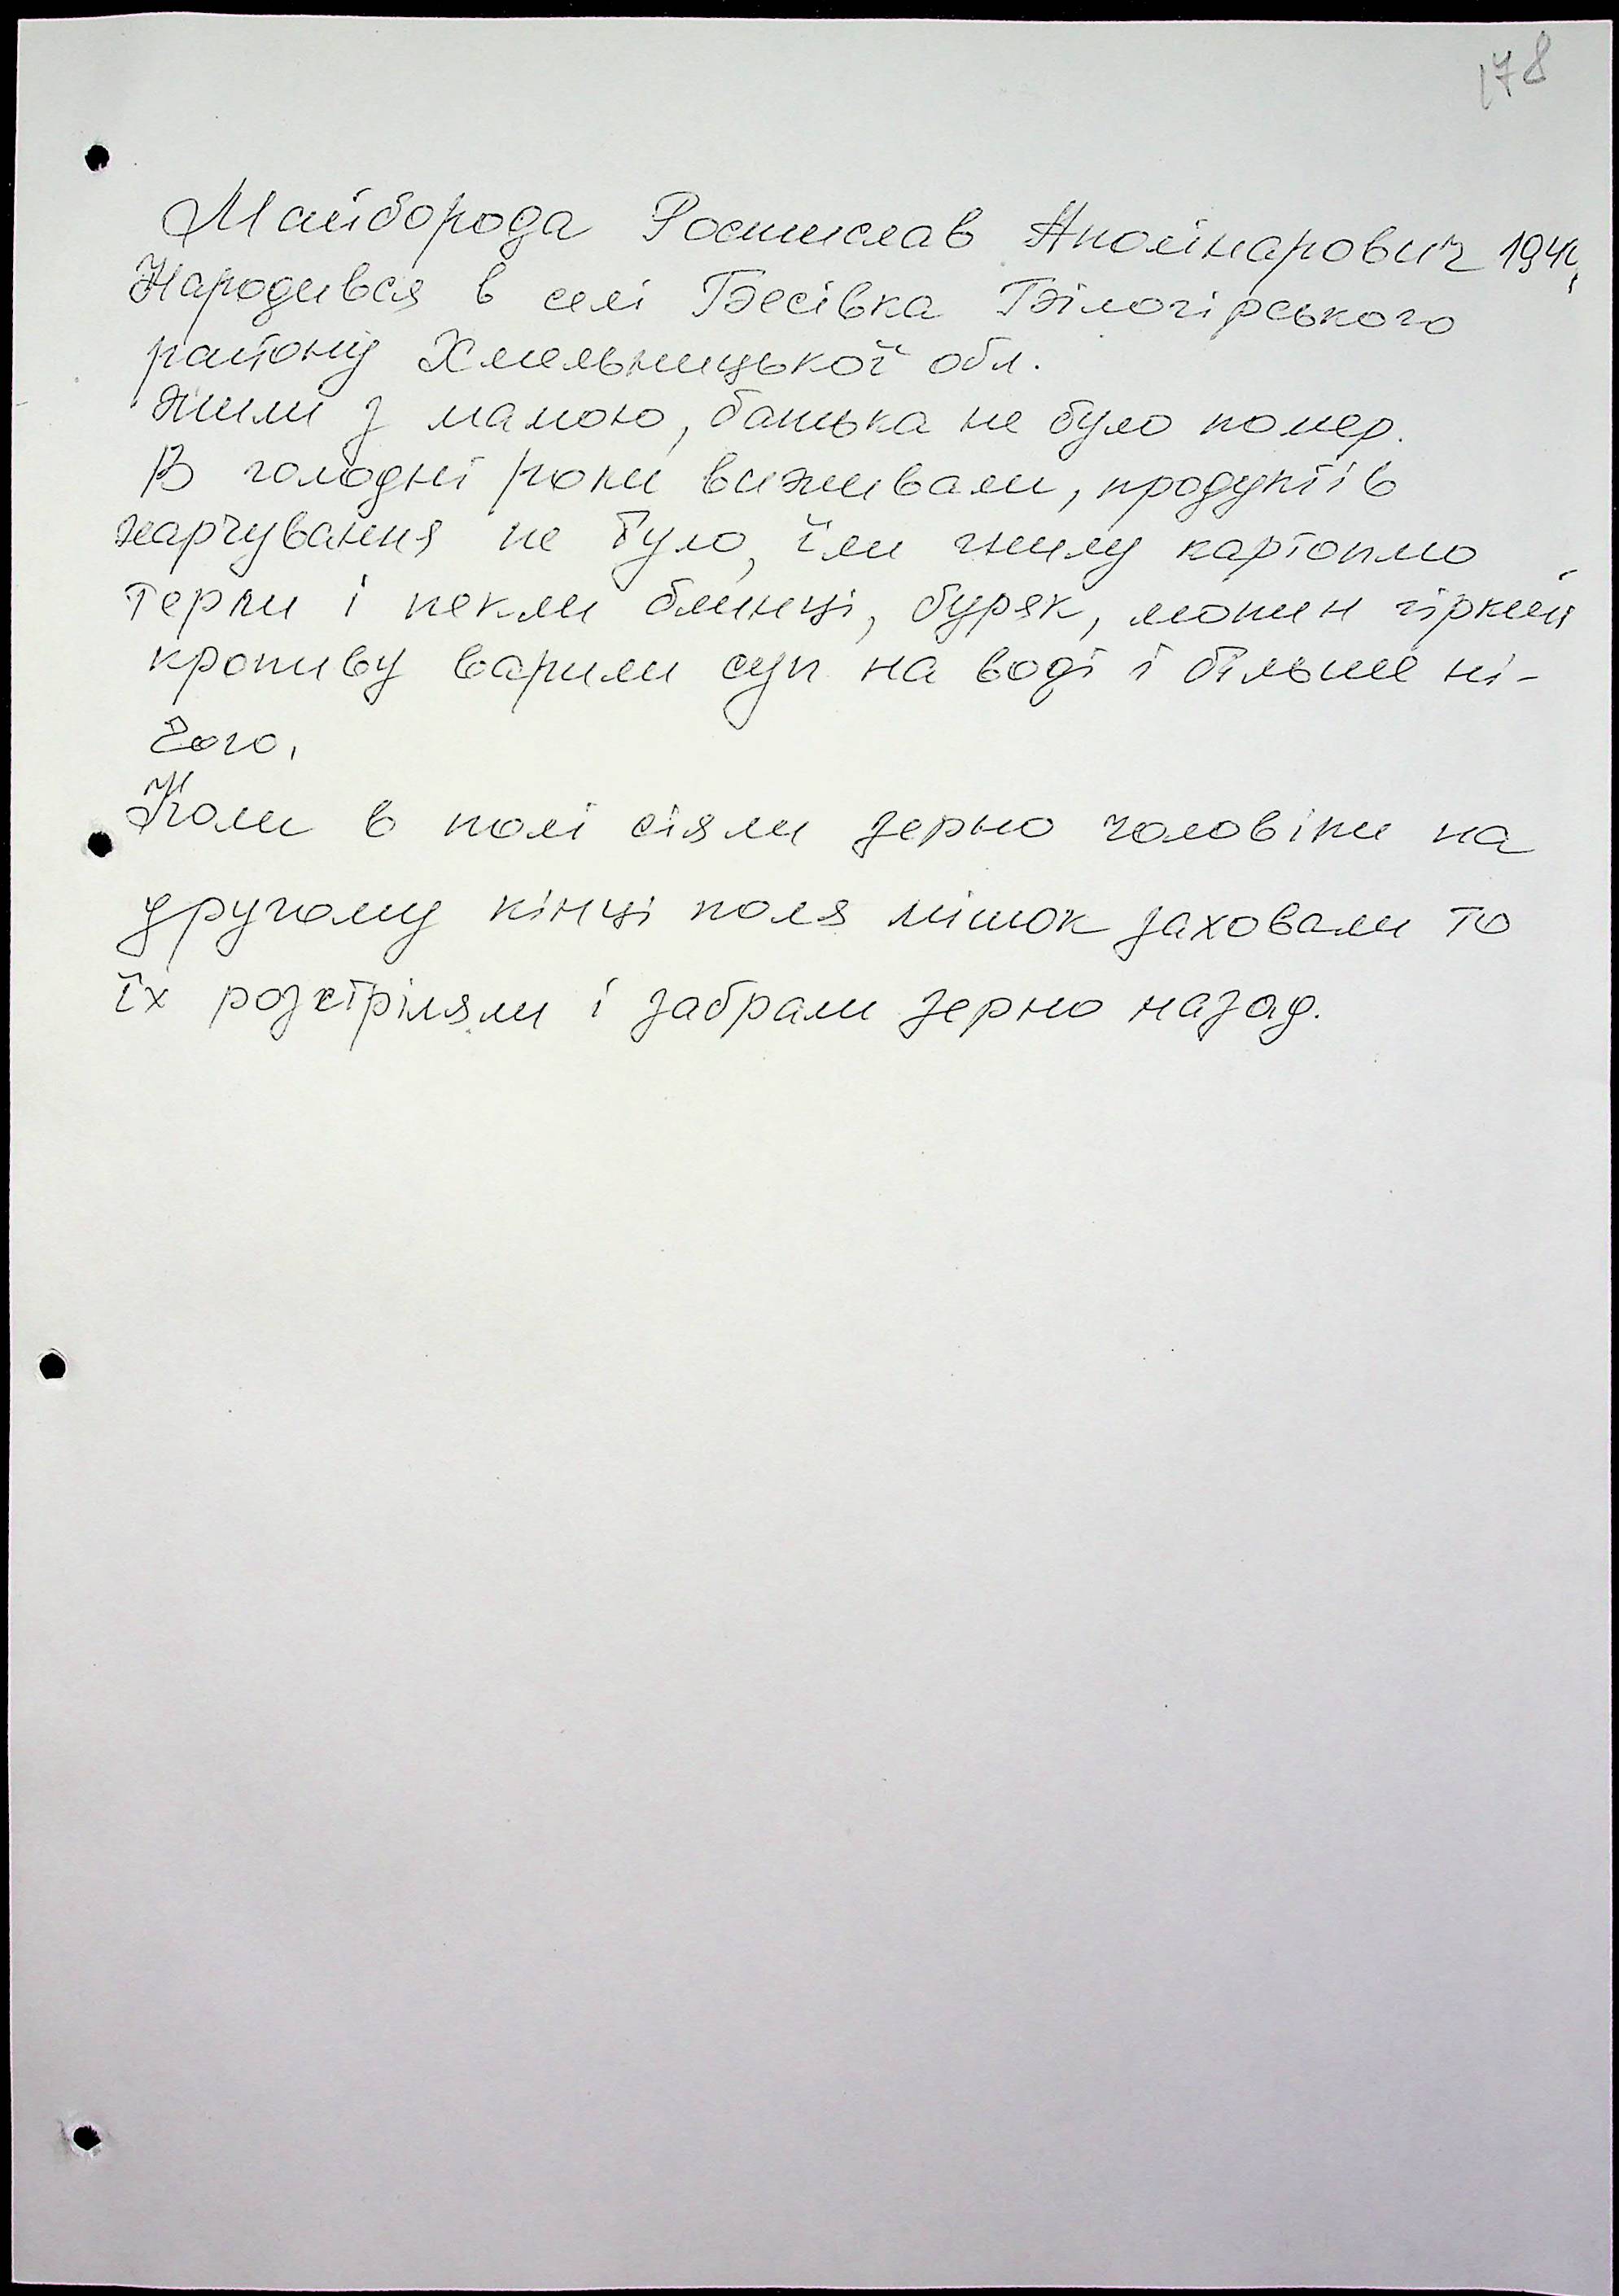 178
Майборода Ростислав Аполінарович
Народився в селі Бесівка Білогірського
району Хмельницької обл.
Жили з мамою, батька не було помер.
В голодні роки виживали, продуктів
харчування не було, їли гнилу картоплю
терли і пекли блинці, буряк, люпин гіркий
кропиву варили суп на воді і більше ні-
чого.
Коли в полі сіяли зерно чоловіки на
другому кінці поля мішок заховали то
їх розстріляли і забрали зерно назад.